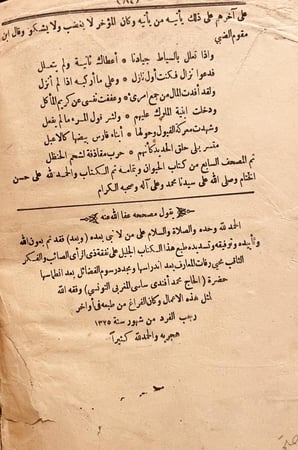 (٨٤)
على آخرهم على ذلك يأتيه من يأتيه وكان المؤخر لا يغضب ولا يشكو وقال ابن
مقوم الضبي
واذا تعلل بالسياط جيادنا * أعطاك ثانية ولم يتعلل
فدعوا نزال فكنت أول نازل * وعلى ما أركبه اذا لم أنزل
ولقد أفدت المال من جمع امرئ * وعففت نفسى عن كريم المأكل
ودخلت ابنية الملوك عليهم * ولشر قول المرء ما لم يفعل
وشهدت معركة الفيول وحولها * أبناء فارس بيضها كالاعبل
متسربلى حلق الحديد كأنهم * جرب مقاذفة لشجر الحنظل
تم المصحف السابع من كتاب الحيوان وبتمامه تم الكتاب والحمد لله على حسن
الختام وصلى الله على سيدنا محمد وعلى آله وصحبه الكرام
يقول مصححه عفا الله عنه
الحمد لله وحده والصلاة والسلام على من لا نبى بعده (وبعد) فقد تم بعون الله
وتأييده وتوفيقه وتسديده طبع هذا الكتاب الجليل على نفقة ذى الرأى الصائب والفكر
الثاقب محيى رفات المعارف بعد اندراسها ومجدد رسوم الفضائل بعد انطماسها
حضرة (الحاج محمد أفندى ساسى المغربى التونسى) وفقه الله
لمثل هذه الاعمال وكان الفراغ من طبعه فى أواخر
رجب الفرد من شهور سنة ١٣٢٥
هجريه والحمد لله كثيرا